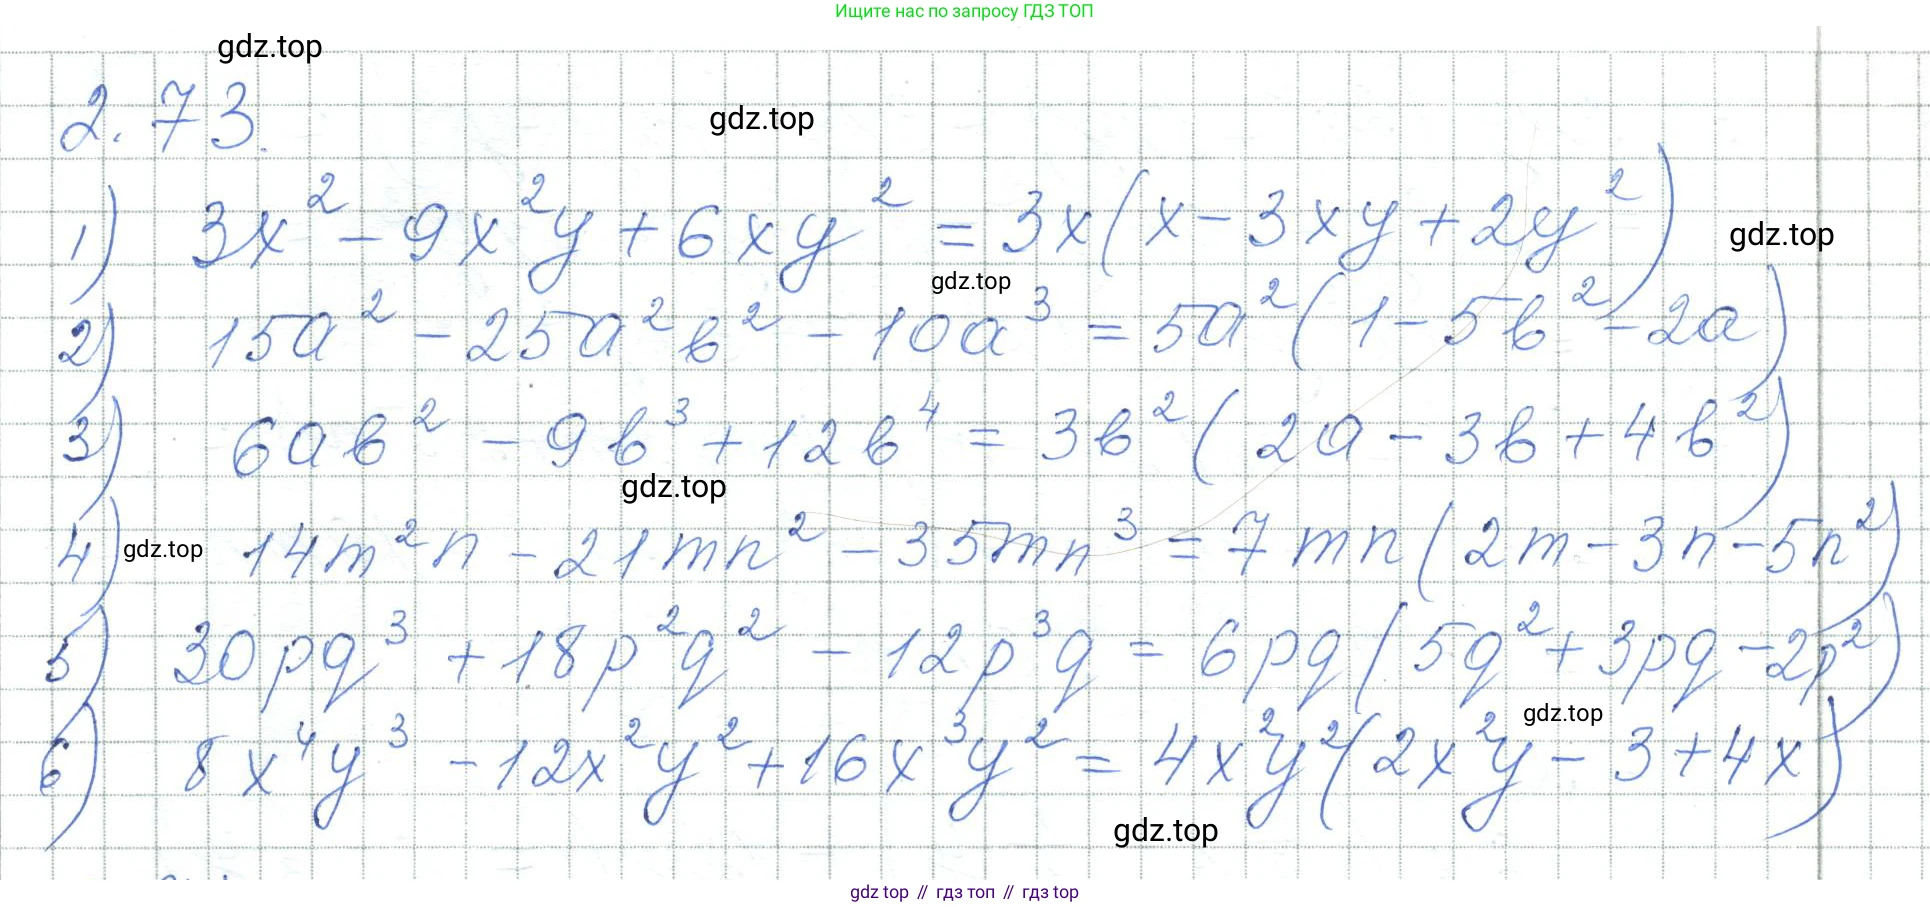 Ищите нас по запросу ГДЗ ТОП
gdz.top
2.73.
gdz.top
1) 3x² - 9x²y + 6xy² = 3x(x - 3xy + 2y²)
gdz.top
gdz.top
2) 15a² - 25a²b² - 10a³ = 5a²(1 - 5b² - 2a)
3) 6ab² - 9b³ + 12b⁴ = 3b²(2a - 3b + 4b²)
gdz.top
4) 14m²n - 21mn² - 35mn³ = 7mn(2m - 3n - 5n²)
gdz.top
5) 30pq³ + 18p²q² - 12p³q = 6pq(5q² + 3pq - 2p²)
gdz.top
6) 8x⁴y³ - 12x²y² + 16x³y² = 4x²y²(2x²y - 3 + 4x)
gdz.top
gdz top // гдз топ // гдз top